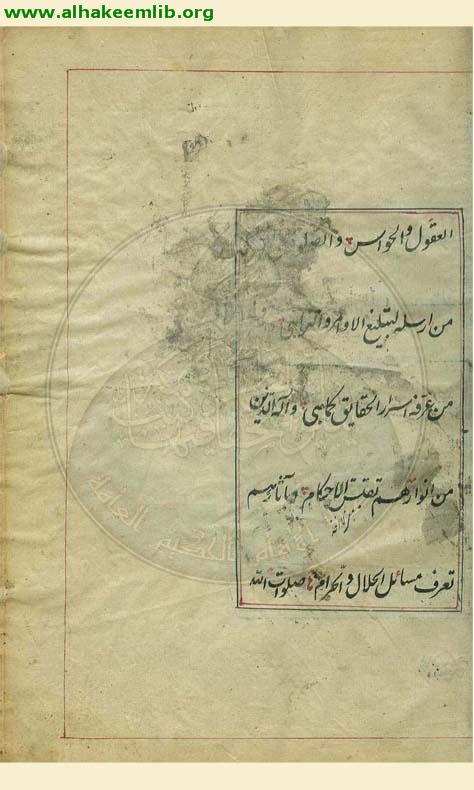 www.alhakeemlib.org
العقول والحواس والصلوة على
من ارسله لتبليغ الاوامر والنواهي
من عرفه اسرار الحقايق كماهي وآله الذين
من انوارهم تقتبس الاحكام وبآثارهم
تعرف مسائل الحلال والحرام صلوات الله